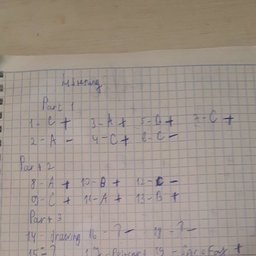 Listening
Part 1
1 - C + 3 - A + 5 - B + 7 - C +
2 - A - 4 - C + 6 - C -
Part 2
8 - A + 10 - B + 12 - C -
9 - C + 11 - A + 13 - B +
Part 3
14 - drawing 16 - ? - 18 - ? -
15 - ? 17 -